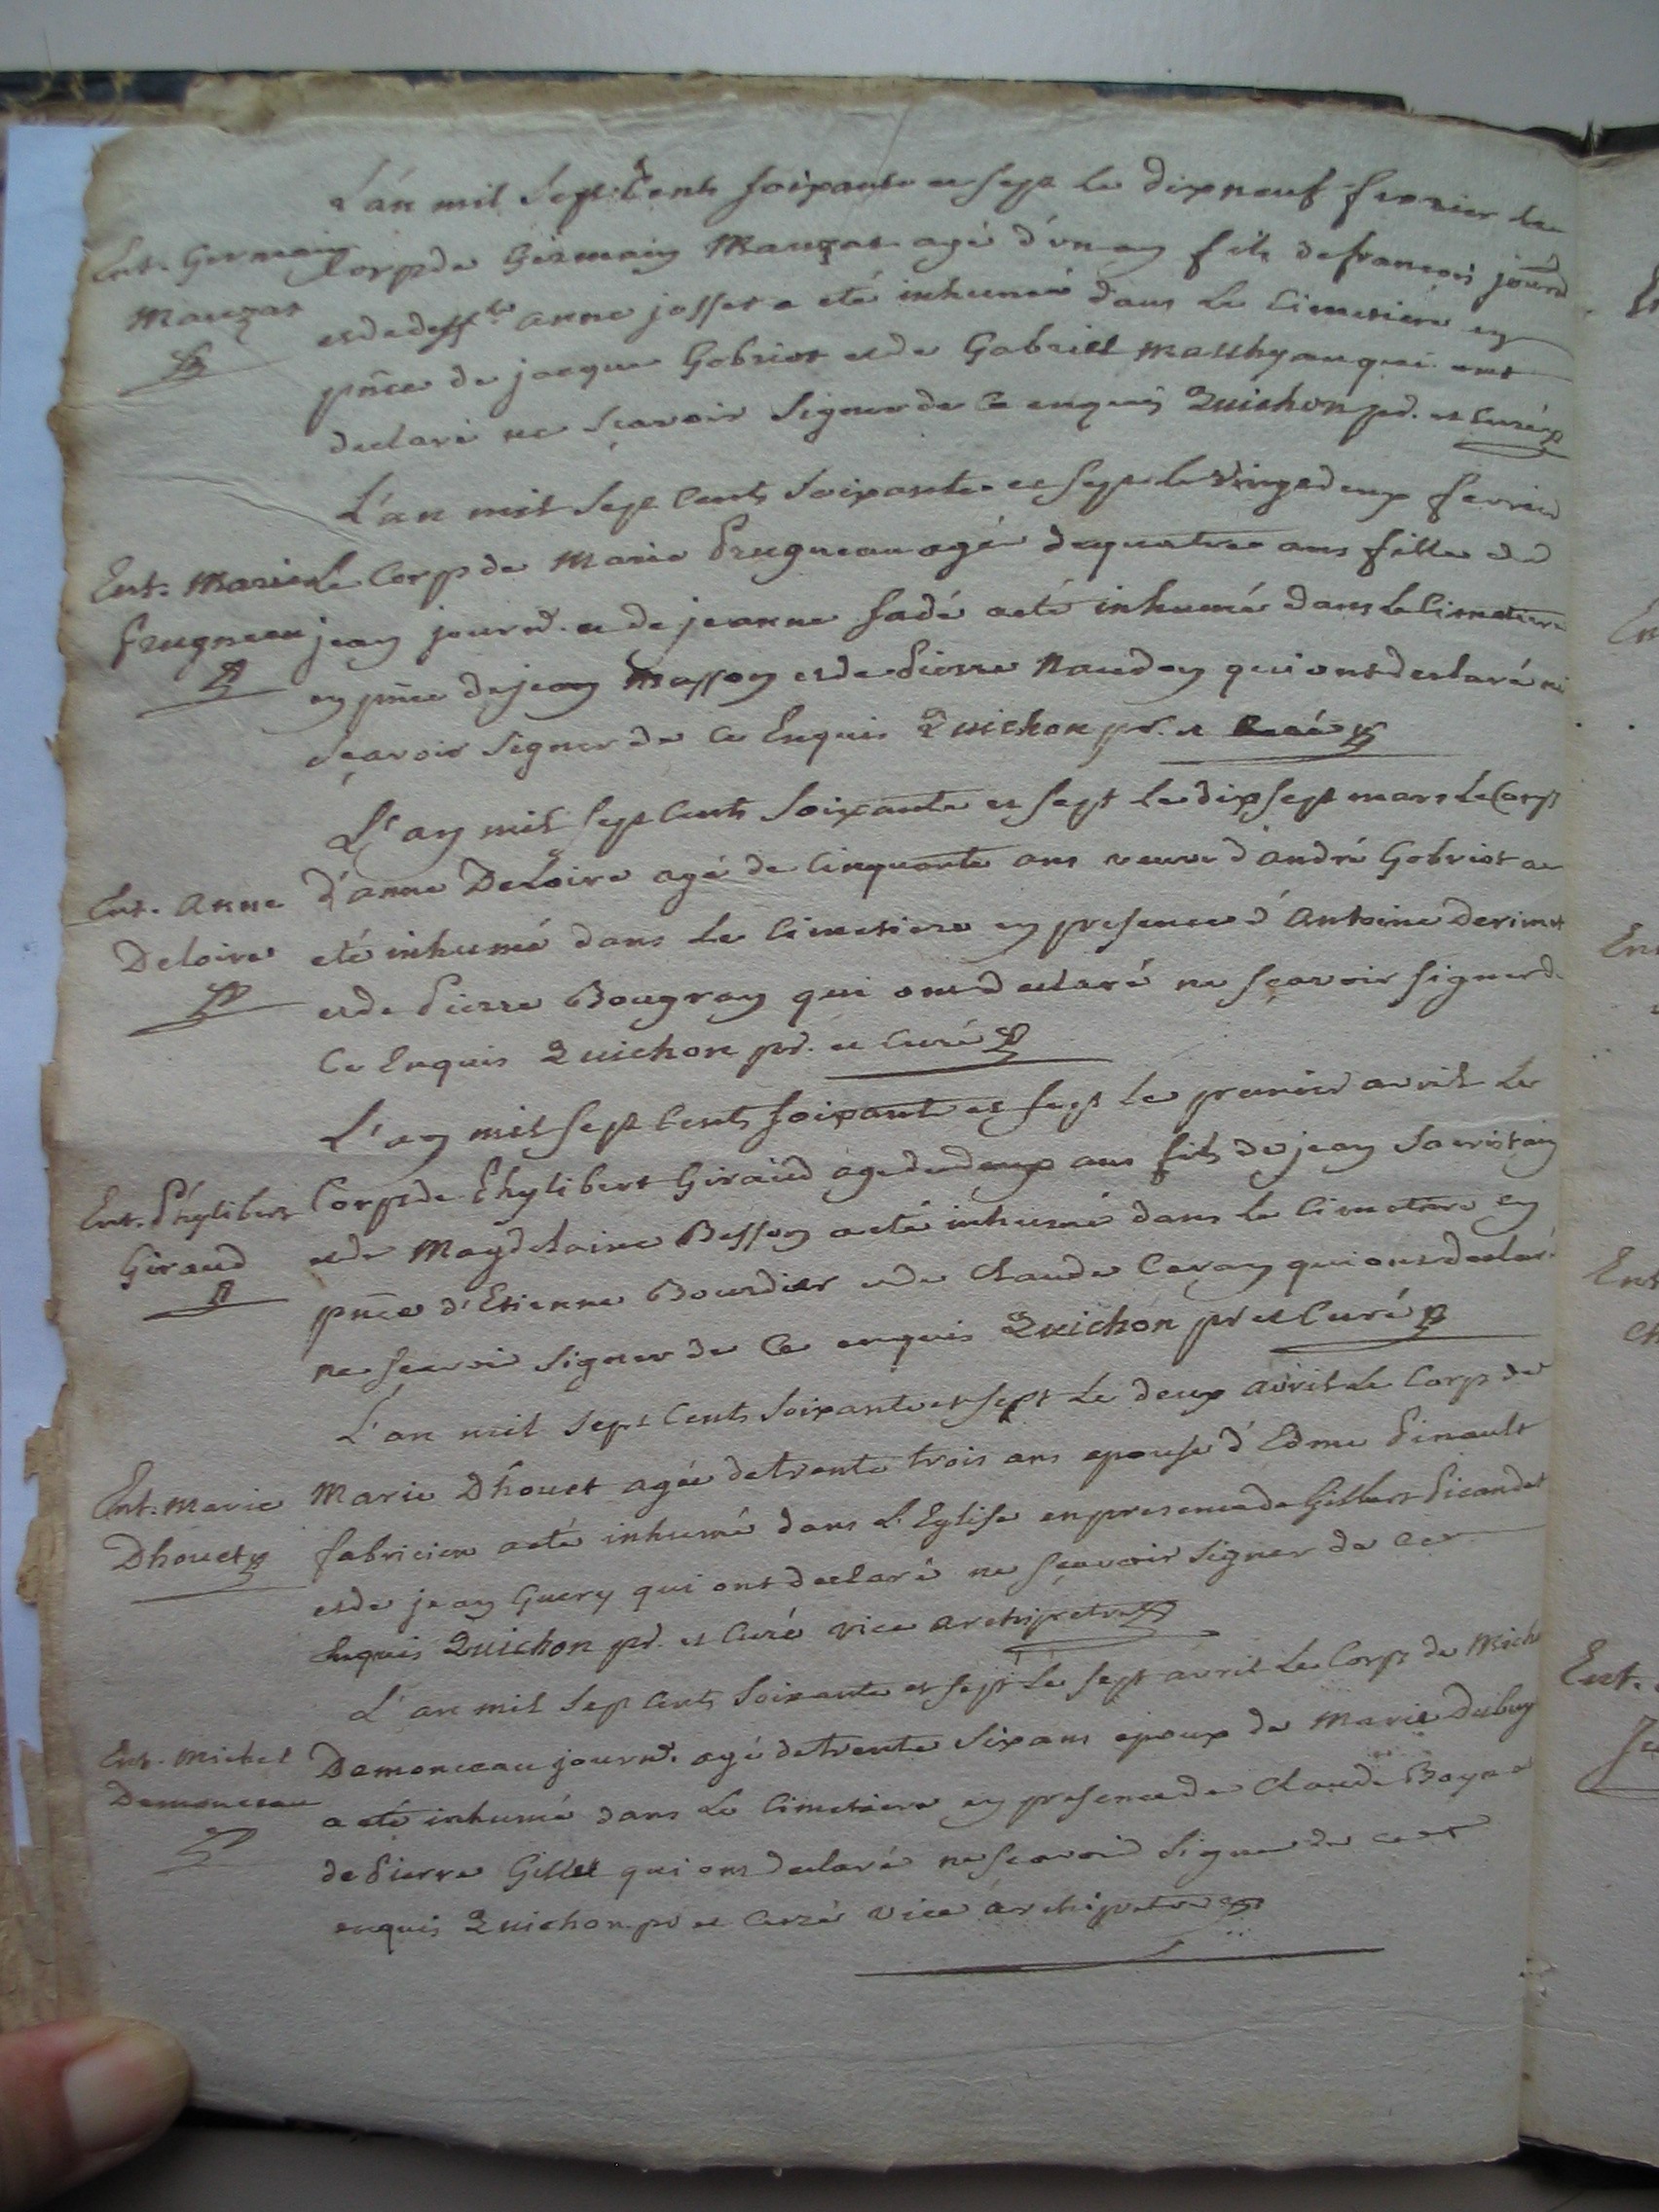 L'an mil Sept Cents soixante et sept le dix neuf fevrier le
Ent. Germain
Mauzat
Corps de Germain Mauzat agé d'un an fils de françois journ
et de deff.te anne josset a eté inhumé dans le Cimetiere en
pnce de jacque Gobriot et de Gabriel qui ont
declaré ne sçavoir signer de ce enquis Quichon pr. et Curé
L'an mil Sept Cents Soixante et Sept le vingt deux fevrier
Ent. Marie
frugneau
le Corps de Marie frugneau agée de quatre ans fille de
jean journ. et de jeanne fadé a eté inhumé dans le Cimetiere
en pnce de jean Masson et de Pierre Naudin qui ont declaré ne
sçavoir signer de ce Enquis Quichon pr. et Curé
L'an mil Sept Cents Soixante et sept le dix sept mars le Corps
Ent. Anne
Deloire
d'anne Deloire agé de Cinquante ans veuve d'andré Gobriot a
eté inhumé dans le Cimetiere en presence d'Antoine Derimet
et de Pierre Bougran qui ont declaré ne sçavoir signer de
Ce Enquis Quichon pr. et Curé
L'an mil Sept Cents Soixante et sept le premier avril le
Ent. Phylibert
Giraud
Corps de Phylibert Giraud agé de deux ans fils de jean Sacristain
et de Magdelaine Besson a eté inhumé dans le Cimetiere en
pnce d'Etienne Bourdier et de Claude qui ont declaré
ne sçavoir Signer de Ce enquis Quichon pr et Curé
L'an mil Sept Cents Soixante et sept Le deux avril Le Corps de
Ent. Marie
Dhouet
Marie Dhouet agée de trente trois ans epouse d'Edme Pinault
fabricien a eté inhumé dans L'Eglise en presence de Gilbert Picandet
et de jean Guery qui ont declaré ne sçavoir signer de ce
Enquis Quichon pr. et Curé vice archipretre
L'an mil Sept Cents Soixante et sept Le sept avril Le Corps de Michel
Ent. Michel
Demonceau
Demonceau journ. agé de trente Six ans epoux de Marie Dubuy
a eté inhumé dans Le Cimetiere en presence de Claude et
de Pierre Gillet qui ont declaré ne sçavoir Signer de ce
enquis Quichon pr et Curé vice archipretre
Ent.